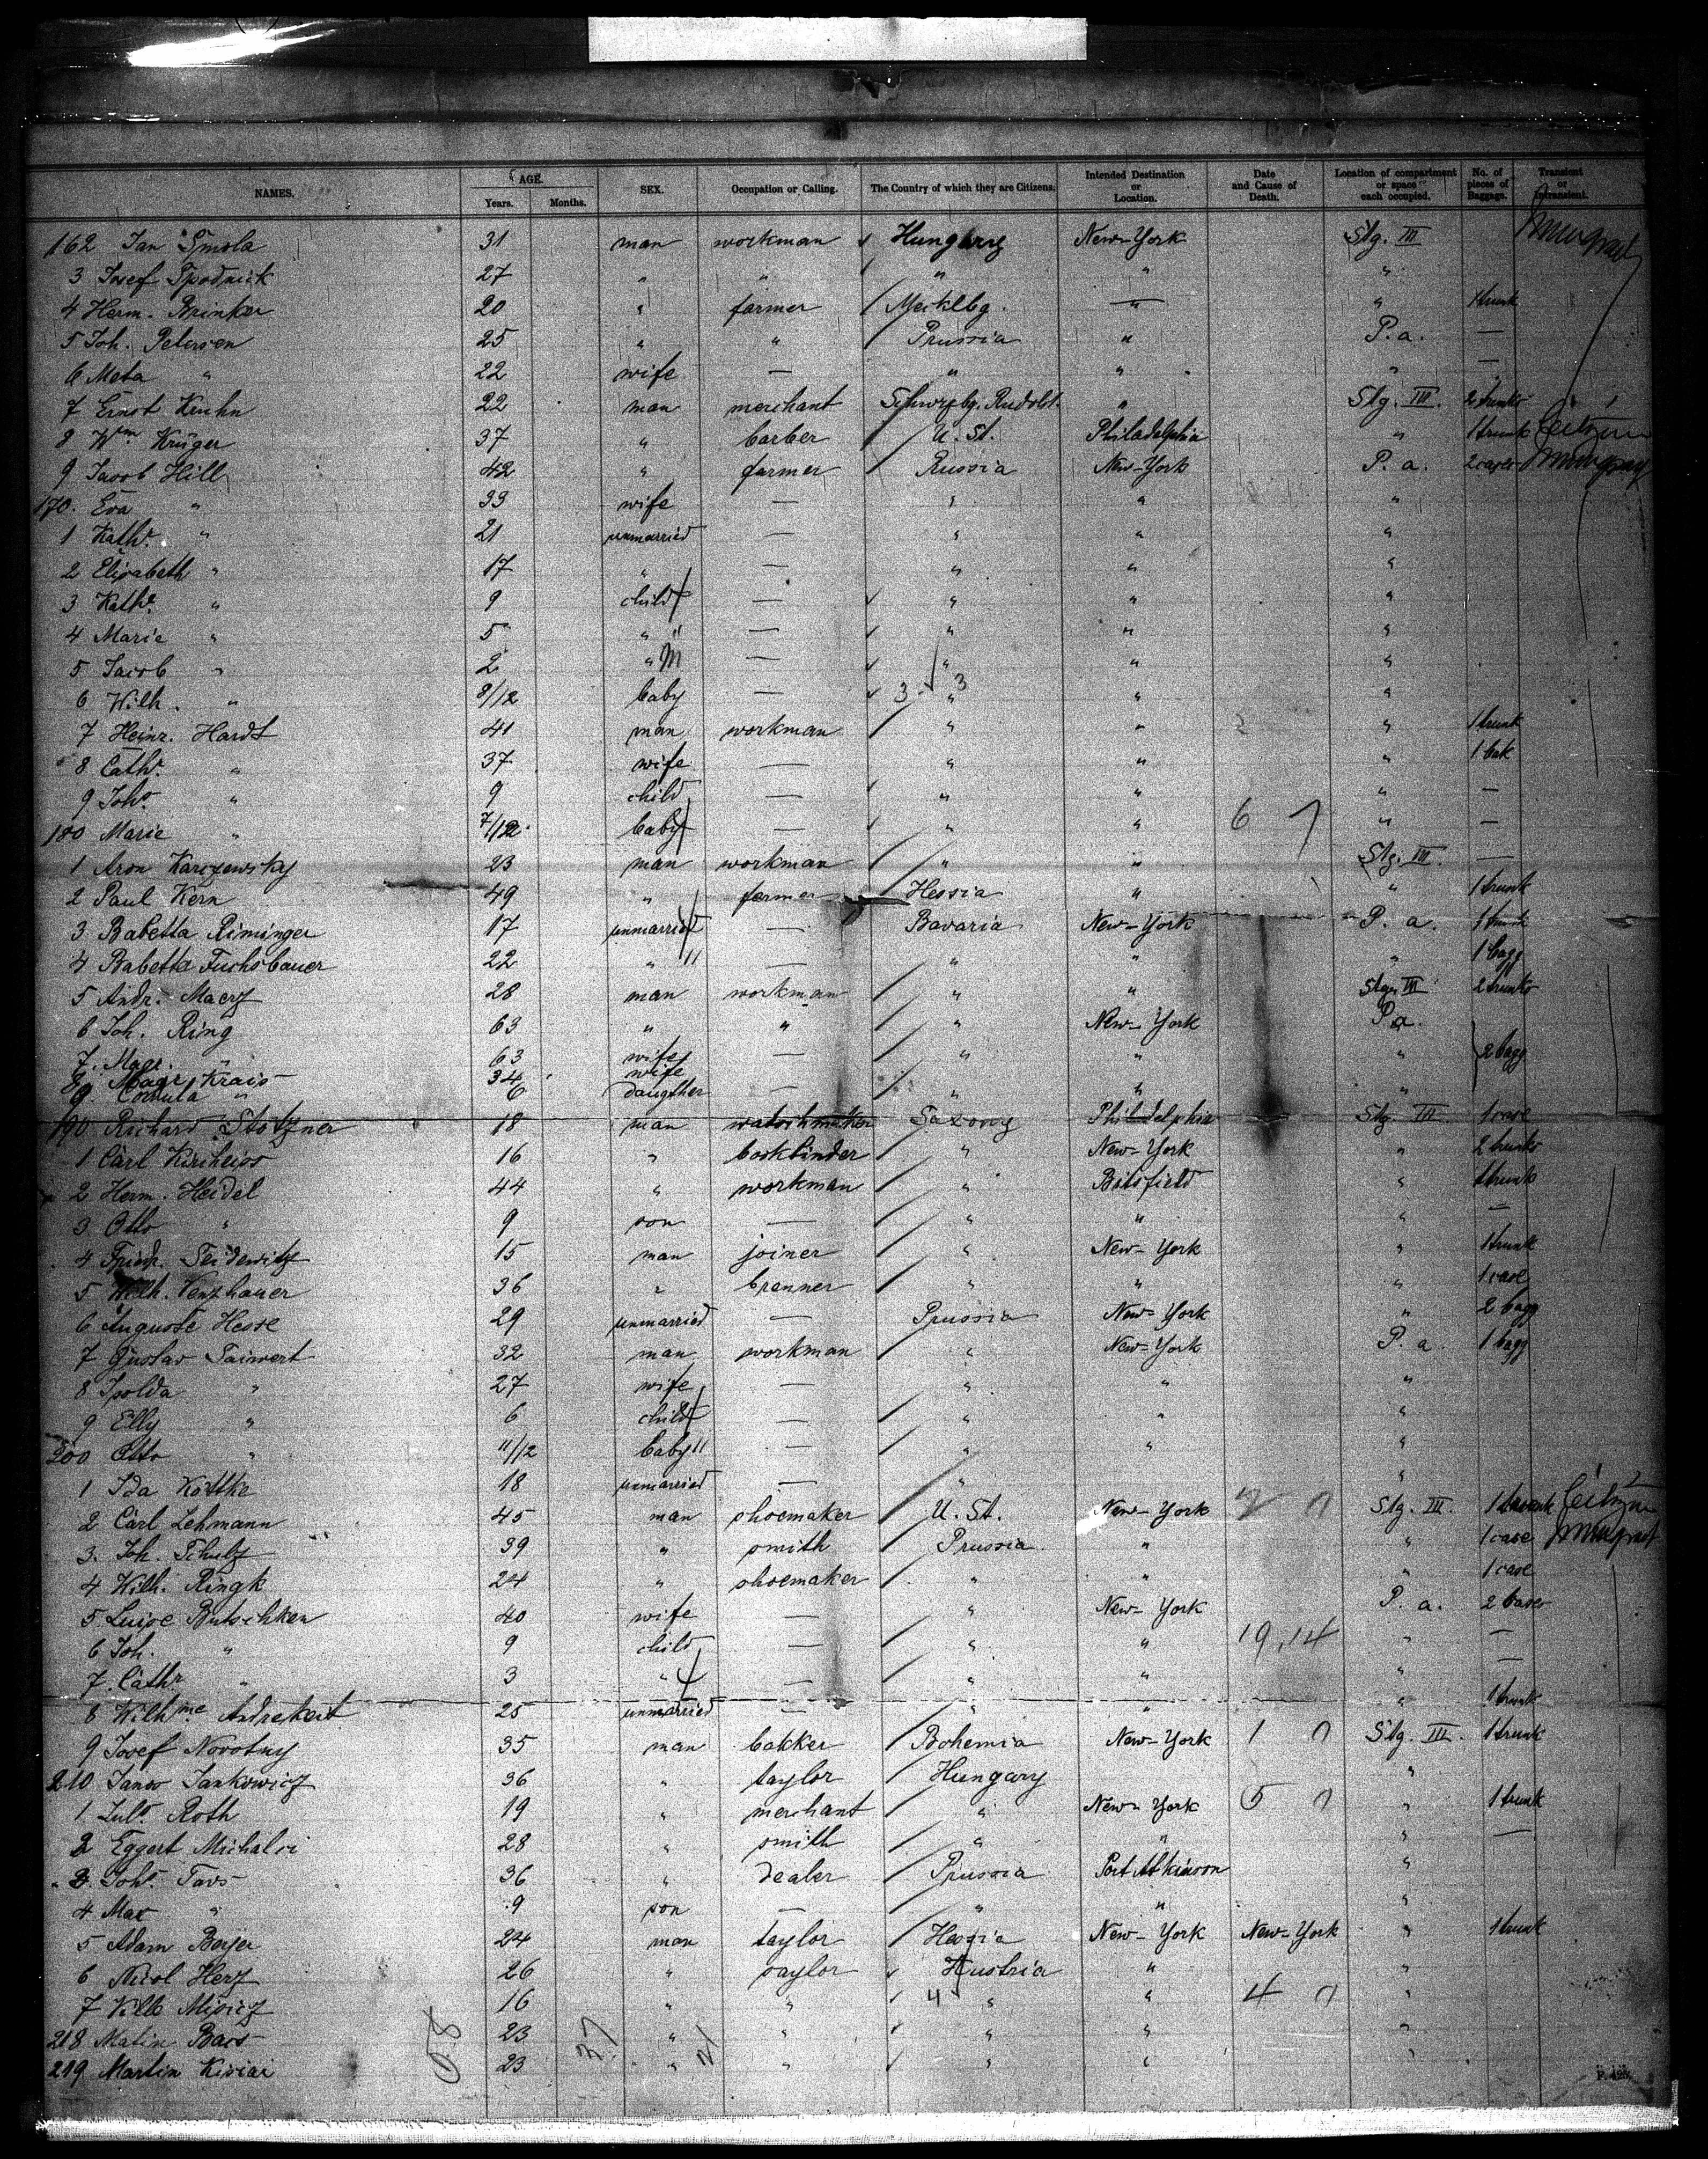 NAMES. AGE. Years. Months. SEX. Occupation or Calling. The Country of which they are Citizens. Intended Destination or Location. Date and Cause of Death. Location of compartment or space each occupied. No. of pieces of Baggage. Transient or
162 Jan Smola 31 man workman Hungary New-York Stg. III
3 Josef 27 " " " " "
4 Herm. Brinker 20 " farmer Mecklbg. " " 1 trunk
5 Joh. Petersen 25 " " Prussia " P. a. —
6 Meta " 22 wife — " " " —
7 Ernst Kuhn 22 man merchant Schwrzbg. Rudolst. " Stg. III. 2 trunks
8 Wm Krüger 37 " barber U. St. Philadelphia " 1 trunk Citizen
9 Jacob Hill 42 " farmer Russia New-York P. a.
170. Eva " 33 wife — " " "
1 Kathr. " 21 unmarried — " " "
2 Elisabeth " 17 " — " " "
3 Kathr. " 9 child — " " "
4 Marie " 5 " " — " " "
5 Jacob " 2 " M — " " "
6 Wilh. " 8/12 baby — 3 " 3 " "
7 Heinr. Hardt 41 man workman " " " 1 trunk
8 Cathr. " 37 wife — " " "
9 Johs. " 9 child — " " " —
180 Marie " 7/12 baby — " " 6 7 " —
1 Aron Karczewsky 23 man workman " " Stg. III. —
2 Paul Kern 49 " farmer Hessia " " 1 trunk
3 Babetta Riminger 17 unmarried — Bavaria New-York P. a. 1 trunk
4 Babette Fuchsbauer 22 " — " " " 1 bagg
5 Andr. 28 man workman " " Stg. III 2 trunks
6 Joh. Ring 63 " " " New-York P. a.
7. Magr. " 63 wife — " " " 2 bagg
8 Magr. Krais 34 wife
9 " 6 daugther — " " "
190 Richard Stotzner 18 man watschmaker Saxony Philadelphia Stg. III 1 case
1 Carl Kircheiss 16 " bookbinder " New-York " 2 trunks
2 Herm. Heidel 44 " workman " Bitsfield " 1 trunk
3 Otto " 9 son — " " " —
4 Friedr. Seidewitz 15 man joiner " New-York " 1 trunk
5 Wilh. Venzhauer 36 " brenner " " " 1 case
6 Auguste Hesse 29 unmarried — Prussia New-York " 2 bagg
7 Gustav Taiwert 32 man workman " New-York P. a. 1 bagg
8 Isolda " 27 wife — " " "
9 Elly " 6 child — " " "
200 Otto " 11/12 baby " — " " "
1 Ida Kottke 18 unmarried — " "
2 Carl Lehmann 45 man shoemaker U. St. New-York Stg. III. Citizen
3. Joh. Schulz 39 " smith Prussia " " 1 case
4 Wilh. Ringk 24 " shoemaker " " " 1 case
5 Luise Butschken 40 wife — " New-York P. a. 2 cases
6 Joh. " 9 child — " " 19,14 " —
7. Cathr. " 3 " — " " " —
8 Wilhme. 25 unmarried — " " " 1 trunk
9 Josef Novotny 35 man bakker Bohemia New-York 1 Stg. III. 1 trunk
210 Janos Jankowicz 36 " taylor Hungary "
1. Juls. Roth 19 " merchant " New-York 5 " 1 trunk
2 Eggert Michalsi 28 " smith " " " —
3. Johs. Tavs 36 " dealer Prussia Port Atkinson "
4 Max " 9 son — " " "
5 Adam Beyer 24 man taylor Hessia New-York New-York " 1 trunk
6 Nicol Herz 26 " saylor Austria " "
7 16 " " 4 " " 4 "
218 Matin Bacs 23 " " " " "
219 Martin Kisiai 23 " " " " "